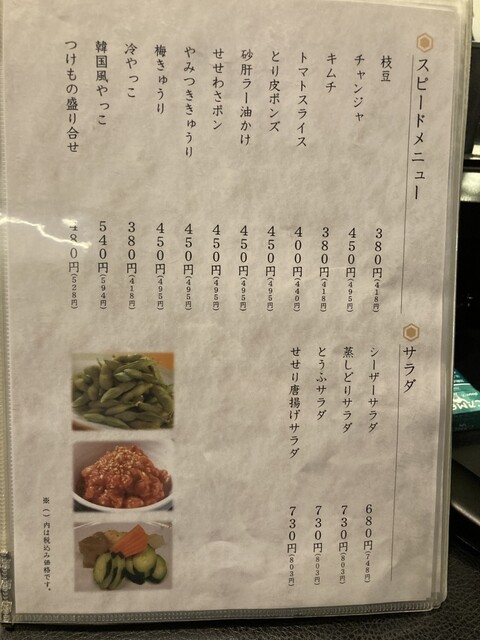 スピードメニュー
枝豆 380円(418円)
チャンジャ 450円(495円)
キムチ 380円(418円)
トマトスライス 400円(440円)
とり皮ポンズ 450円(495円)
砂肝ラー油かけ 450円(495円)
せせわさポン 450円(495円)
やみつききゅうり 450円(495円)
梅きゅうり 450円(495円)
冷やっこ 380円(418円)
韓国風やっこ 540円(594円)
つけもの盛り合せ 480円(528円)
サラダ
シーザーサラダ 680円(748円)
蒸しどりサラダ 730円(803円)
とうふサラダ 730円(803円)
せせり唐揚げサラダ 730円(803円)
※( )内は税込み価格です。